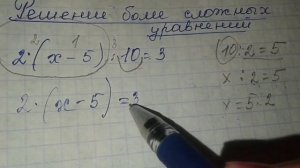 Решение боле сложных
уравнений
2 1 3
2·(x-5):10=3
2·(x-5)=3
10:2=5
x:2=5
x=5·2